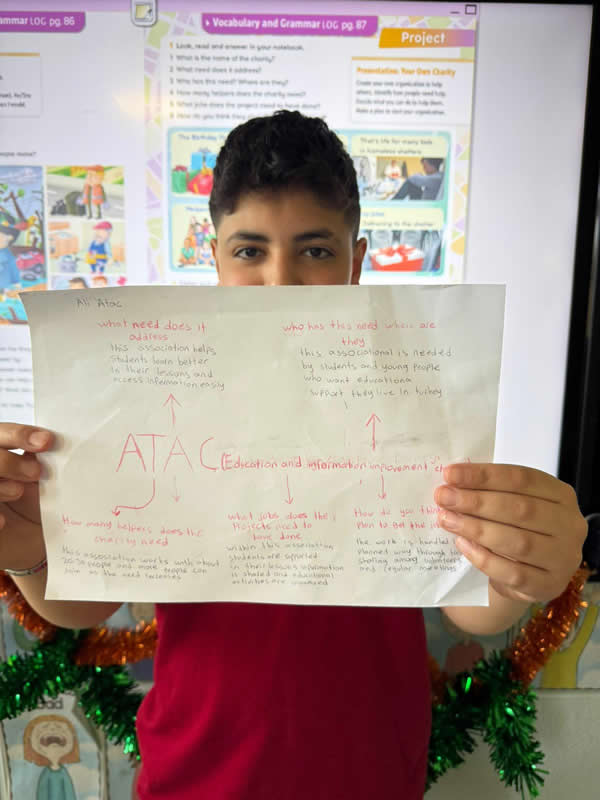 ammar LOG pg. 86
Vocabulary and Grammar LOG pg. 87
Project
1 Look, read and answer in your notebook.
1 What is the name of the charity?
2 What need does it address?
3 Who has this need? Where are they?
4 How many helpers does the charity need?
5 What jobs does the project need to have done?
6 How do you think they
Presentation: Your Own Charity
Create your own organization to help
others. Identify how people need help.
Decide what you can do to help them.
Make a plan to start your organization.
The Birthday
That's life for many kids
in homeless shelters.
Ali Atac
what need does it
address
this association helps
students learn better
in their lessons and
access information easily
who has this need where are
they
this associational is needed
by students and young people
who want educationa
support they live in turkey
ATAC (Edication and information improvement
How many helpers does the
charity need
this association works with about
20-30 people and more people can
join as the need increases
what jobs does the
Projects need to
have done
within this association
students are supported
in their lessons information
is shared and educational
activities are organized
How do you think
Plan to get the
the work is handled
Planned way through
sharing among volunteers
and regular meetings